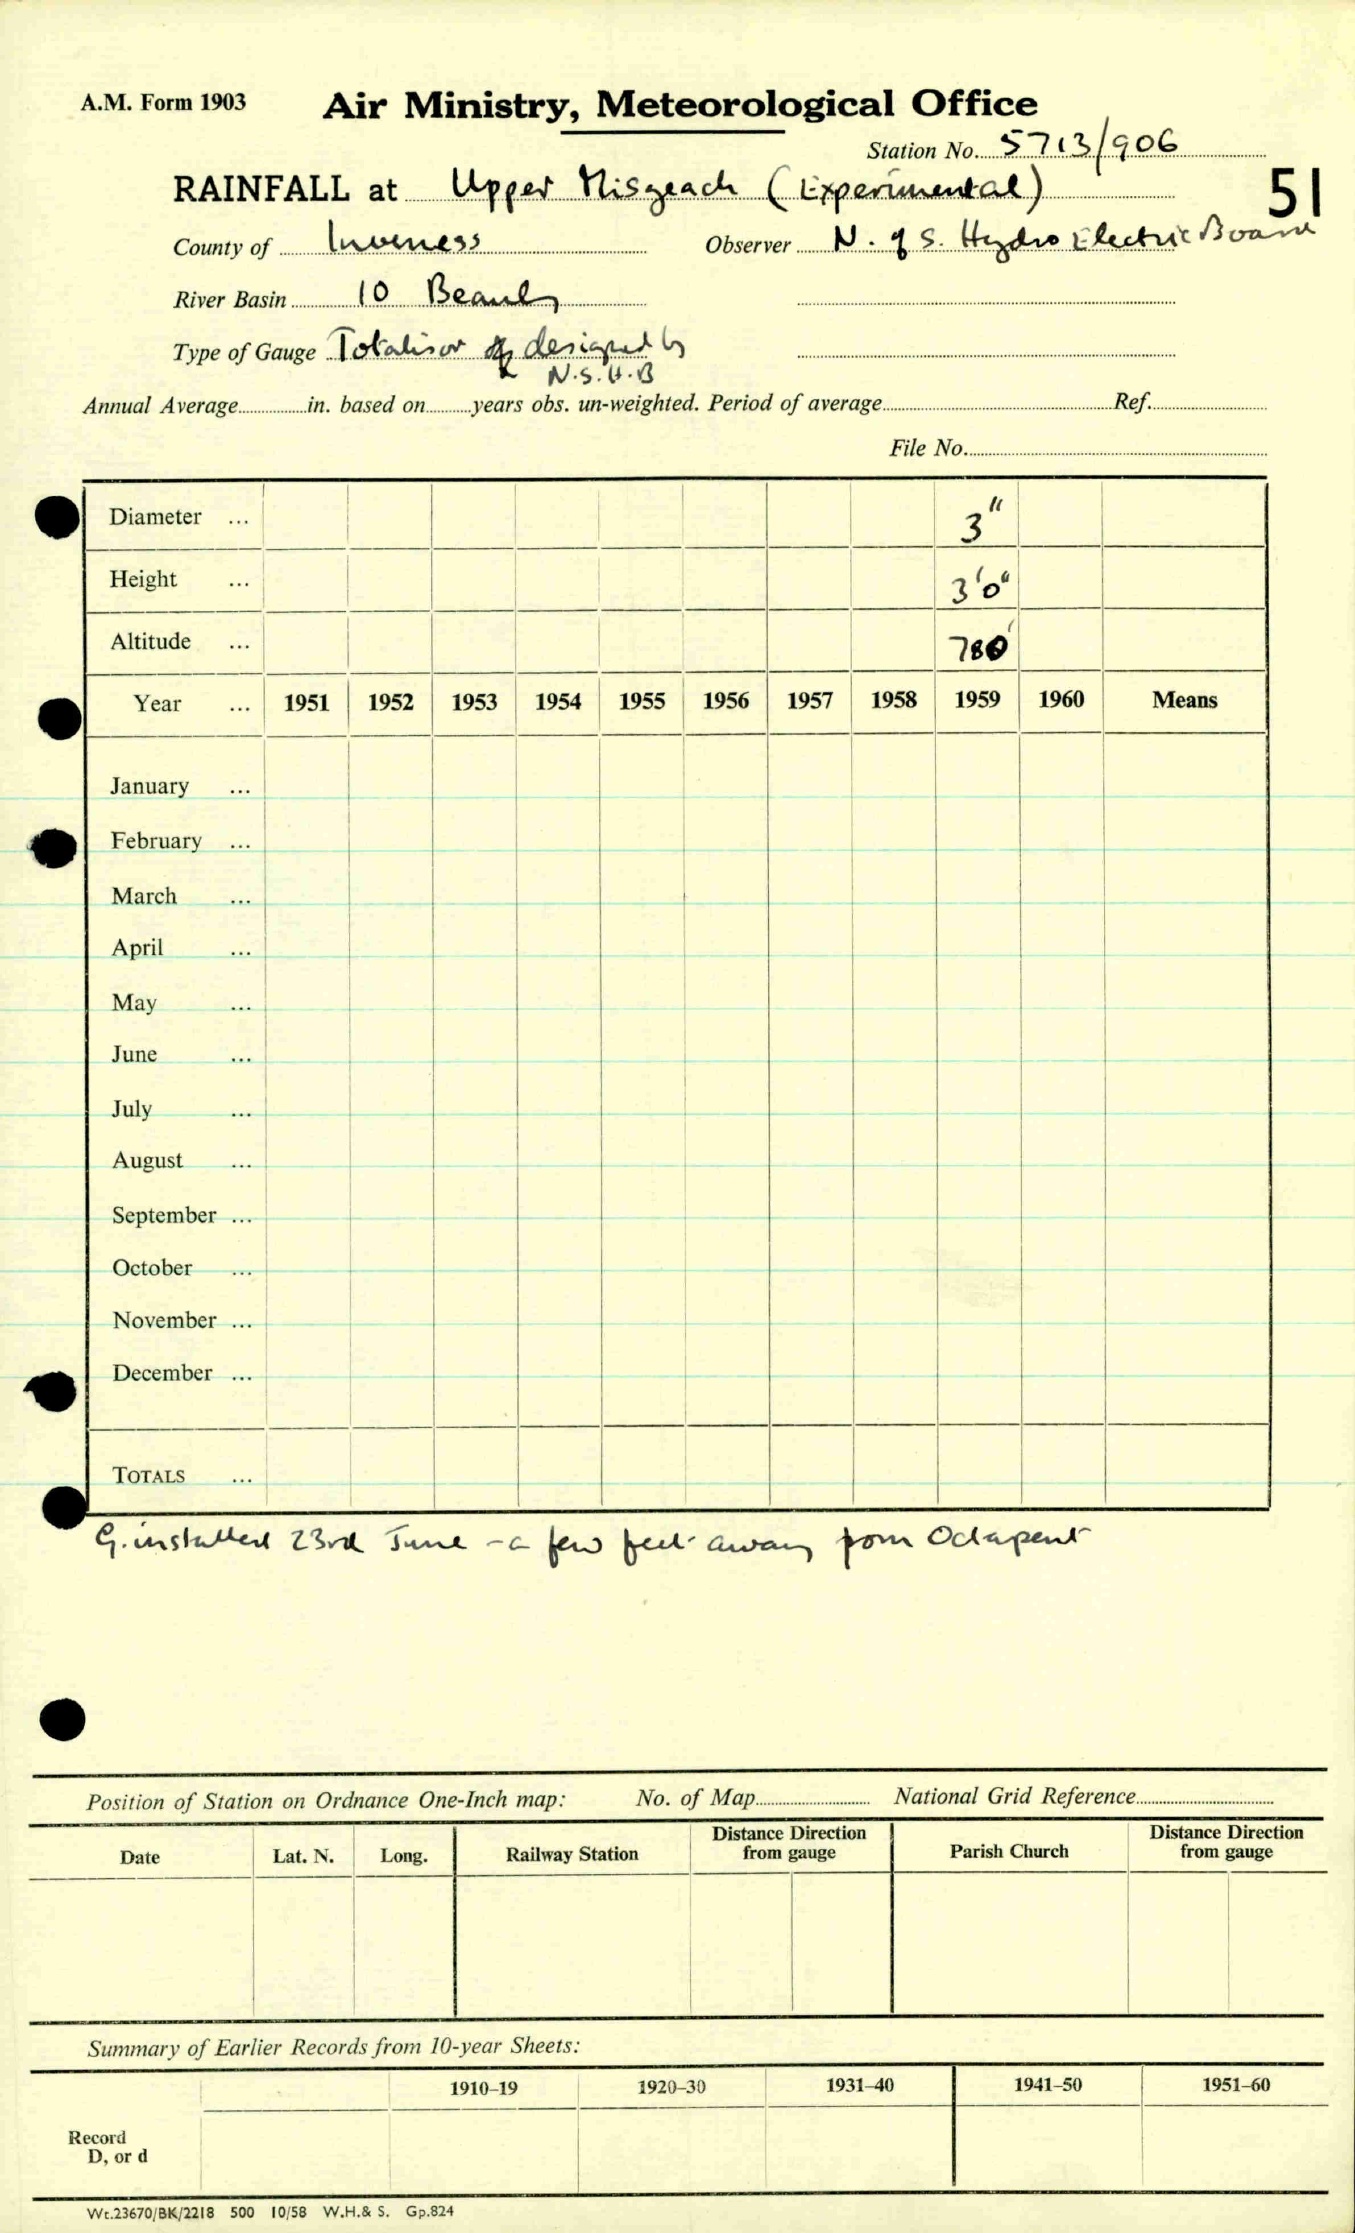 A.M. Form 1903 Air Ministry, Meteorological Office
Station No. 5713/906
RAINFALL at Upper Misgeach (Experimental) 51
County of Inverness Observer N. of S. Hydro Electric Board
River Basin 10 Beauly
Type of Gauge Totalisor designed by
N.S.H.B
Annual Average in. based on years obs. un-weighted. Period of average Ref.
File No.
Diameter ... 3"
Height ... 3'0"
Altitude ... 780'
Year ... 1951 1952 1953 1954 1955 1956 1957 1958 1959 1960 Means
January ...
February ...
March ...
April ...
May ...
June ...
July ...
August ...
September ...
October ...
November ...
December ...
TOTALS ...
G. installed 23rd June - a few feet away from Octapent
Position of Station on Ordnance One-Inch map: No. of Map National Grid Reference
Date Lat. N. Long. Railway Station Distance Direction from gauge Parish Church Distance Direction from gauge
Summary of Earlier Records from 10-year Sheets:
1910–19 1920–30 1931–40 1941–50 1951–60
Record
D, or d
Wt.23670/BK/2218 500 10/58 W.H.& S. Gp.824